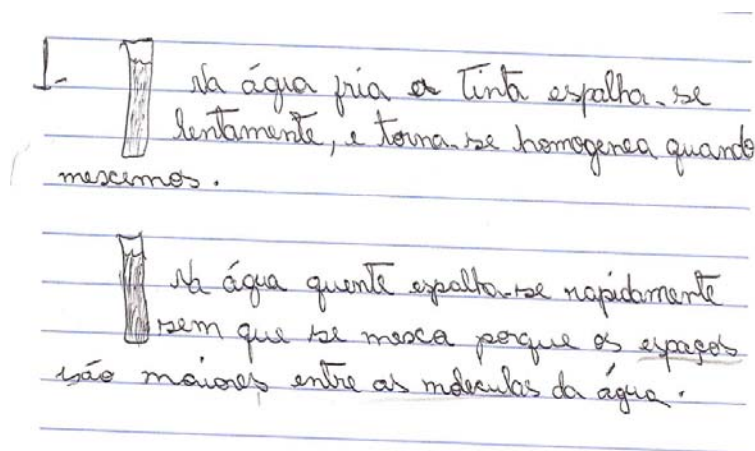 1-
Na água fria a Tinta espalha-se
lentamente, e torna-se homogenea quando
mexemos.
Na água quente espalha-se rapidamente
sem que se mexa porque os espaços
são maiores entre as moleculas da água.